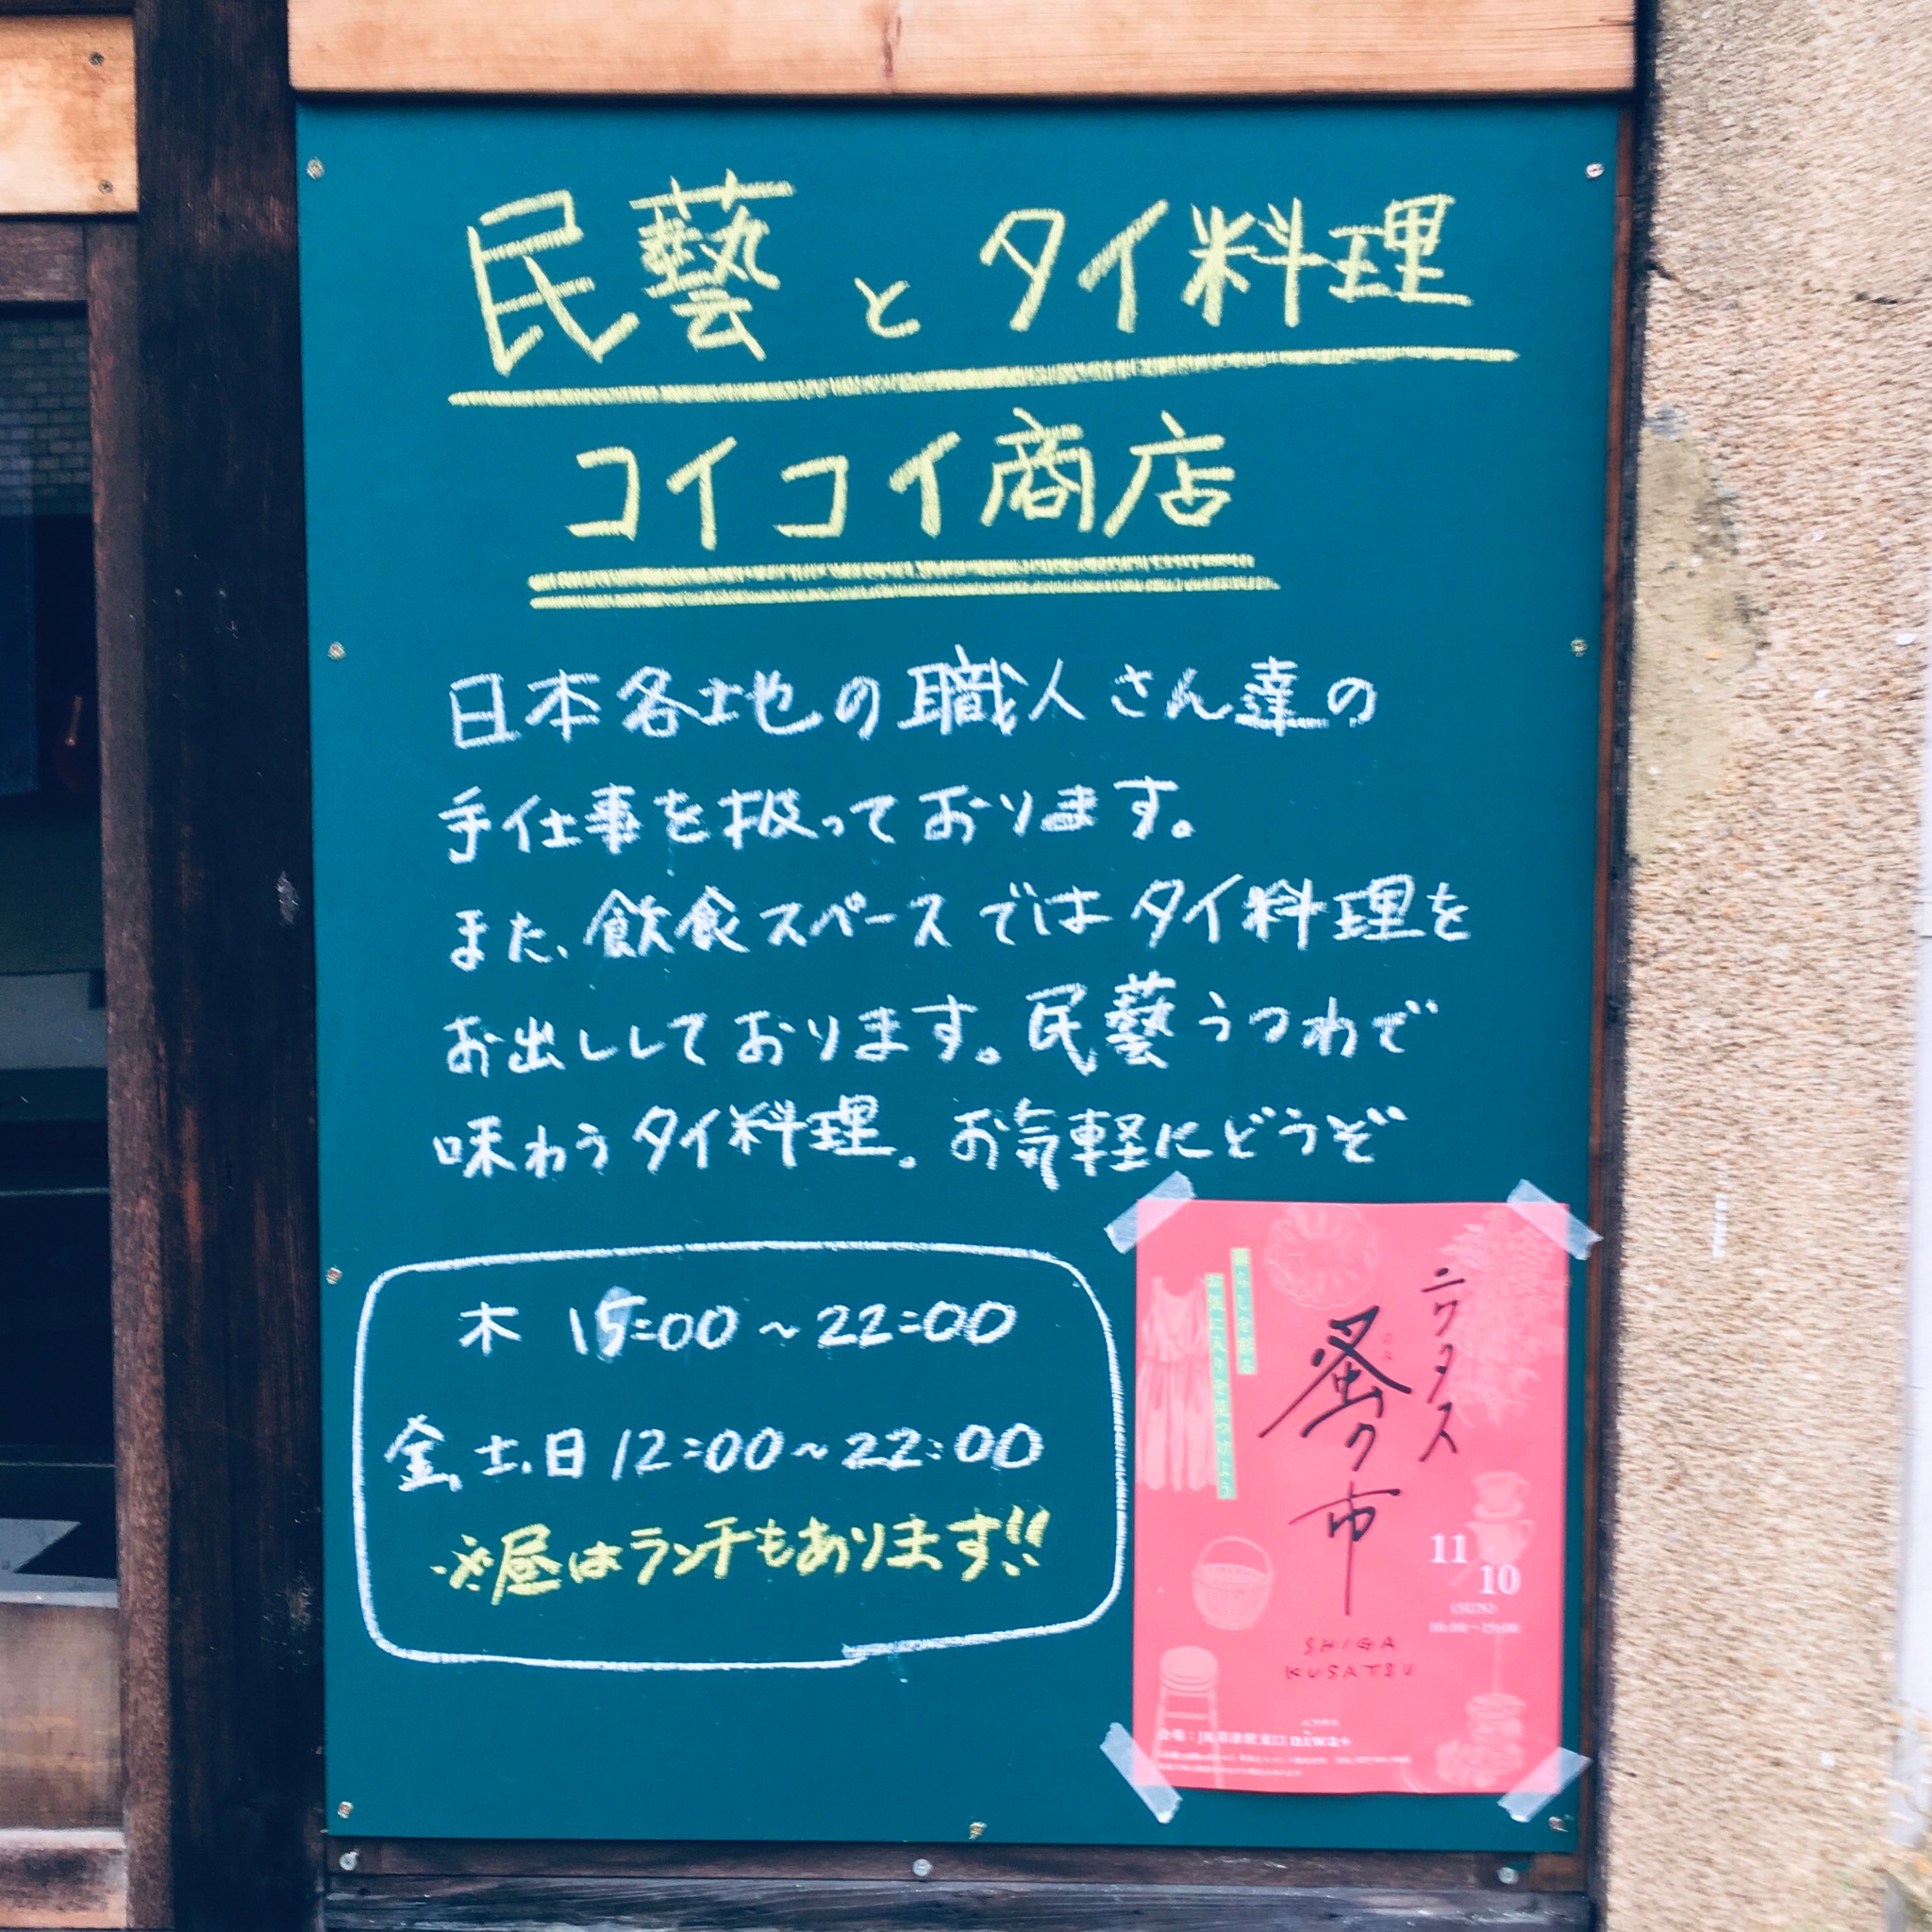 民藝 と タイ料理
コイコイ商店
日本各地の職人さん達の
手仕事を扱っております。
また、飲食スペースではタイ料理を
お出ししております。民藝うつわで
味わうタイ料理。お気軽にどうぞ
木 15:00~22:00
金、土、日 12:00~22:00
※昼はランチもあります!!
ニワタス
蚤の市
11/10
(SUN)
10:00~15:00
SHIGA
KUSATSU
会場:JR草津駅東口 niwa+